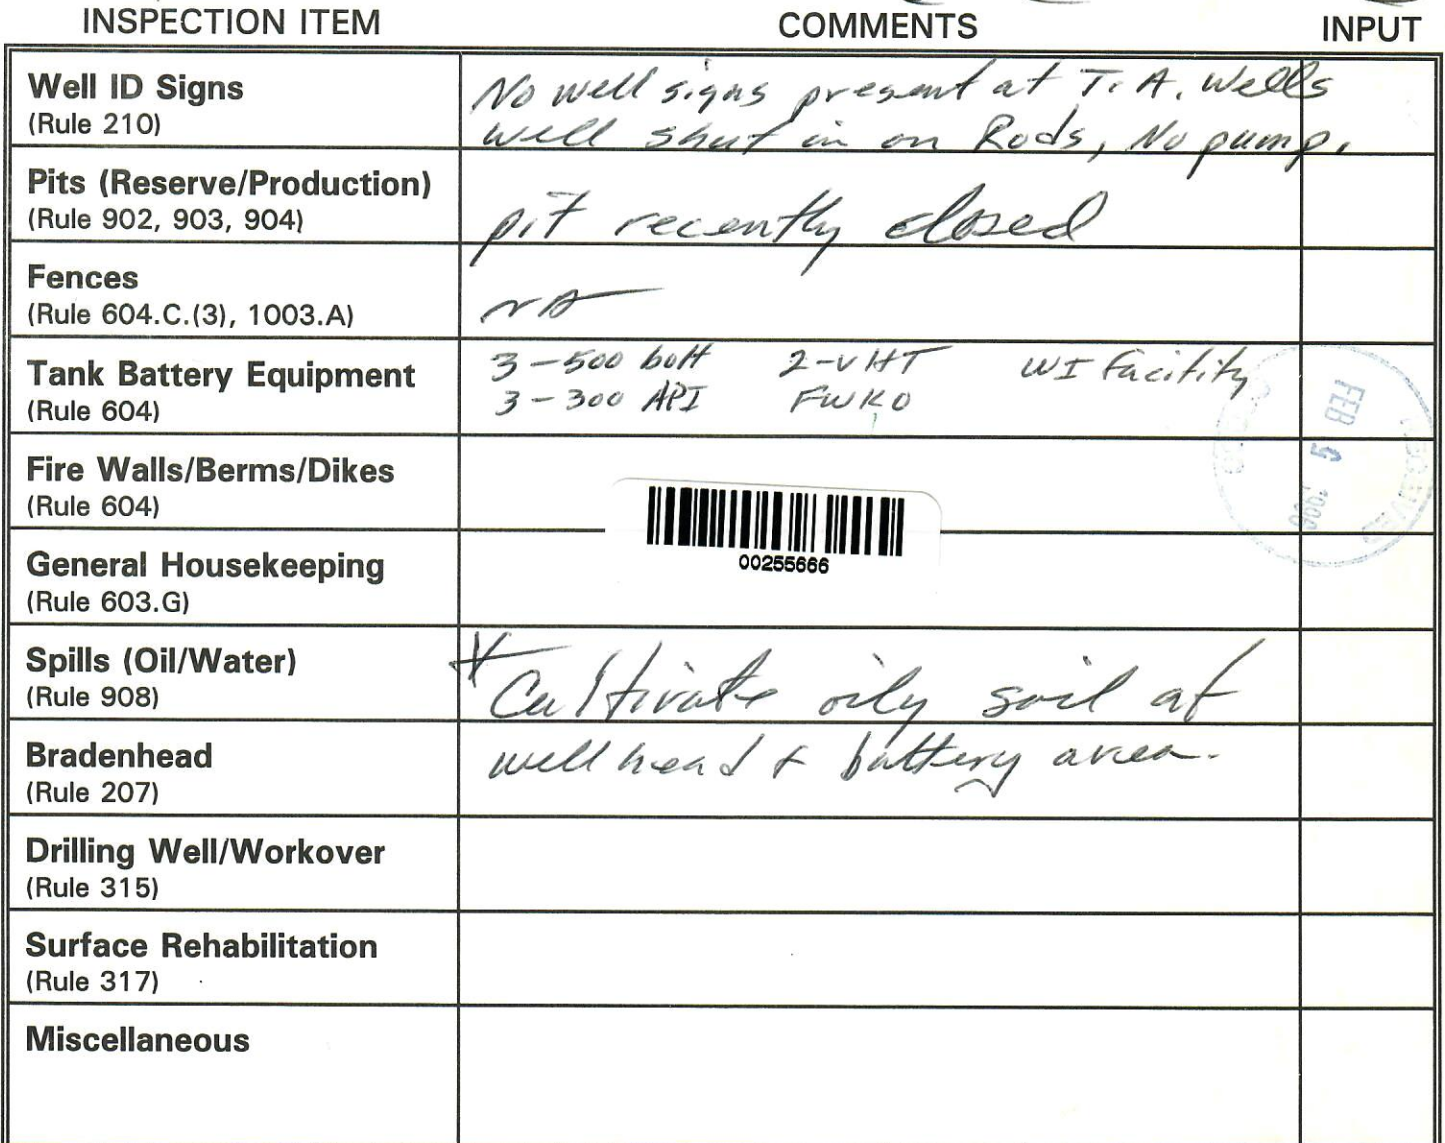 INSPECTION ITEM COMMENTS INPUT
Well ID Signs
(Rule 210)
No well signs present at T.A. Wells
well shut in on Rods, No pump.
Pits (Reserve/Production)
(Rule 902, 903, 904)
pit recently closed
Fences
(Rule 604.C.(3), 1003.A)
NA
Tank Battery Equipment
(Rule 604)
3-500 bolt 2-VHT WI Facility
3-300 API FWKO
FEB 9
Fire Walls/Berms/Dikes
(Rule 604)
00255666
General Housekeeping
(Rule 603.G)
Spills (Oil/Water)
(Rule 908)
* Cultivate oily soil at
well head + battery area.
Bradenhead
(Rule 207)
Drilling Well/Workover
(Rule 315)
Surface Rehabilitation
(Rule 317)
Miscellaneous